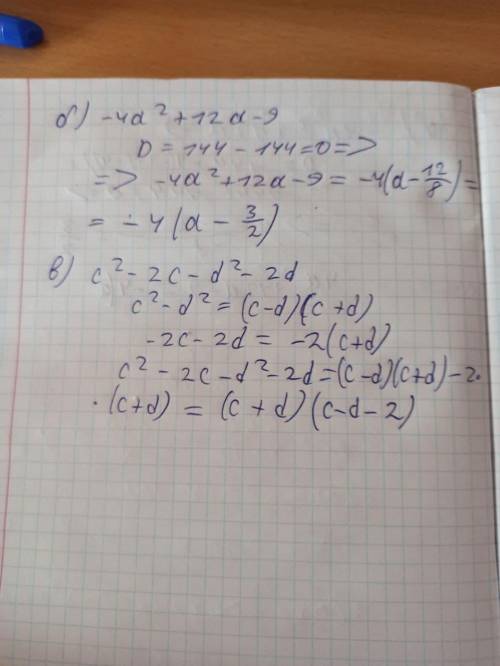 б) -4a² + 12a - 9
D = 144 - 144 = 0 =>
=> -4a² + 12a - 9 = -4(a - 12/8) =
= -4(a - 3/2)
в) c² - 2c - d² - 2d
c² - d² = (c-d)(c+d)
-2c - 2d = -2(c+d)
c² - 2c - d² - 2d = (c-d)(c+d) - 2·
·(c+d) = (c+d)(c-d-2)